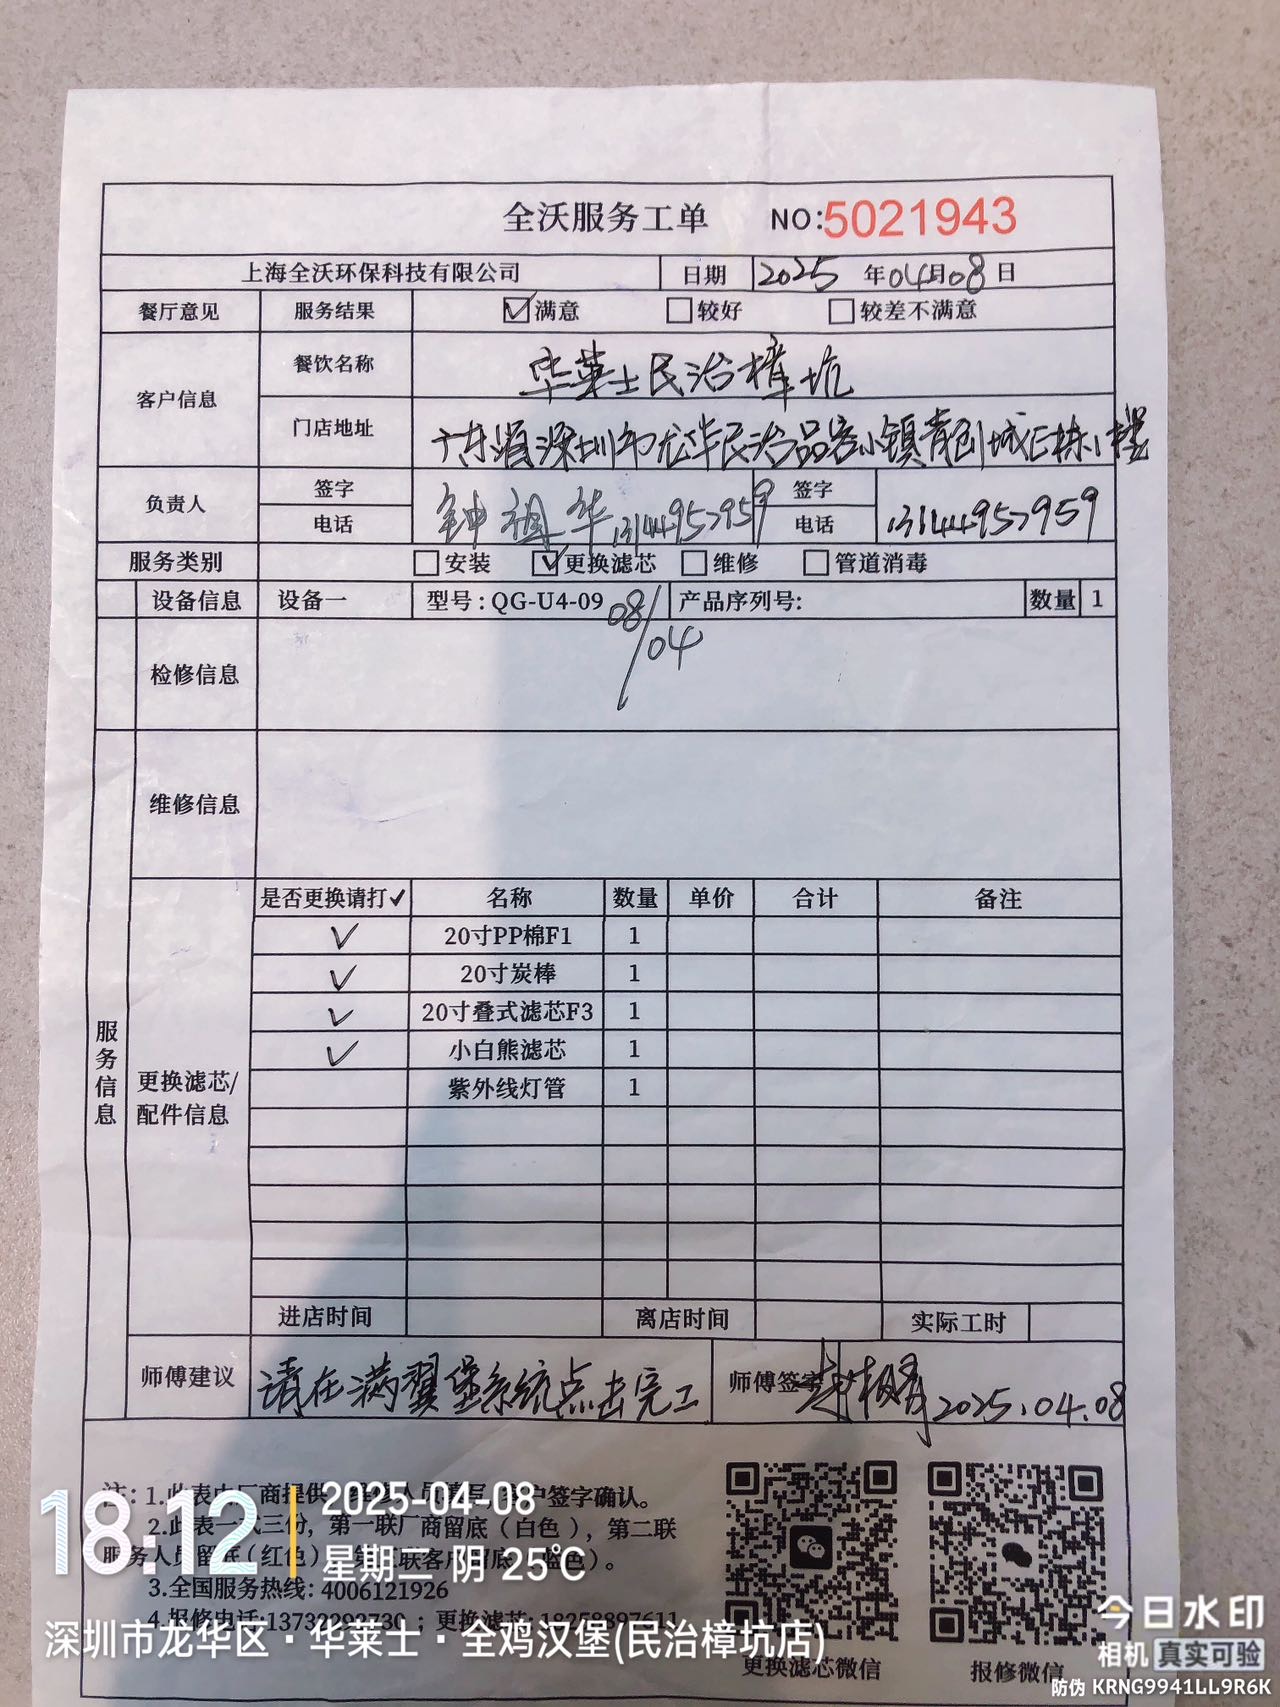 全沃服务工单 NO:5021943
上海全沃环保科技有限公司 日期 2025 年 04 月 08 日
餐厅意见 服务结果 ☑满意 □较好 □较差不满意
客户信息 餐饮名称 华莱士民治樟坑
门店地址 广东省深圳市龙华民治品客小镇青创城E栋1楼
负责人 签字 钟 华 签字
电话 13144957959 电话 13144957959
服务类别 □安装 ☑更换滤芯 □维修 □管道消毒
设备信息 设备一 型号:QG-U4-09 产品序列号: 数量 1
08/04
检修信息
维修信息
服务信息
更换滤芯/配件信息
是否更换请打✓ 名称 数量 单价 合计 备注
✓ 20寸PP棉F1 1
✓ 20寸炭棒 1
✓ 20寸叠式滤芯F3 1
✓ 小白熊滤芯 1
紫外线灯管 1
进店时间 离店时间 实际工时
师傅建议 请在满翼堡系统点击完工 师傅签字 2025.04.08
注:1.此表由厂商提供 签字确认。
2.此表一式三份,第一联厂商留底(白色),第二联
服务人员留底(红色) 联客户留底(蓝色)。
3.全国服务热线:4006121926
4.报修电话:13732292730 ; 更换滤芯:18258897611
更换滤芯微信 报修微信
18:12 2025-04-08
星期二 阴 25℃
深圳市龙华区·华莱士·全鸡汉堡(民治樟坑店)
今日水印
相机 真实可验
防伪 KRNG9941LL9R6K